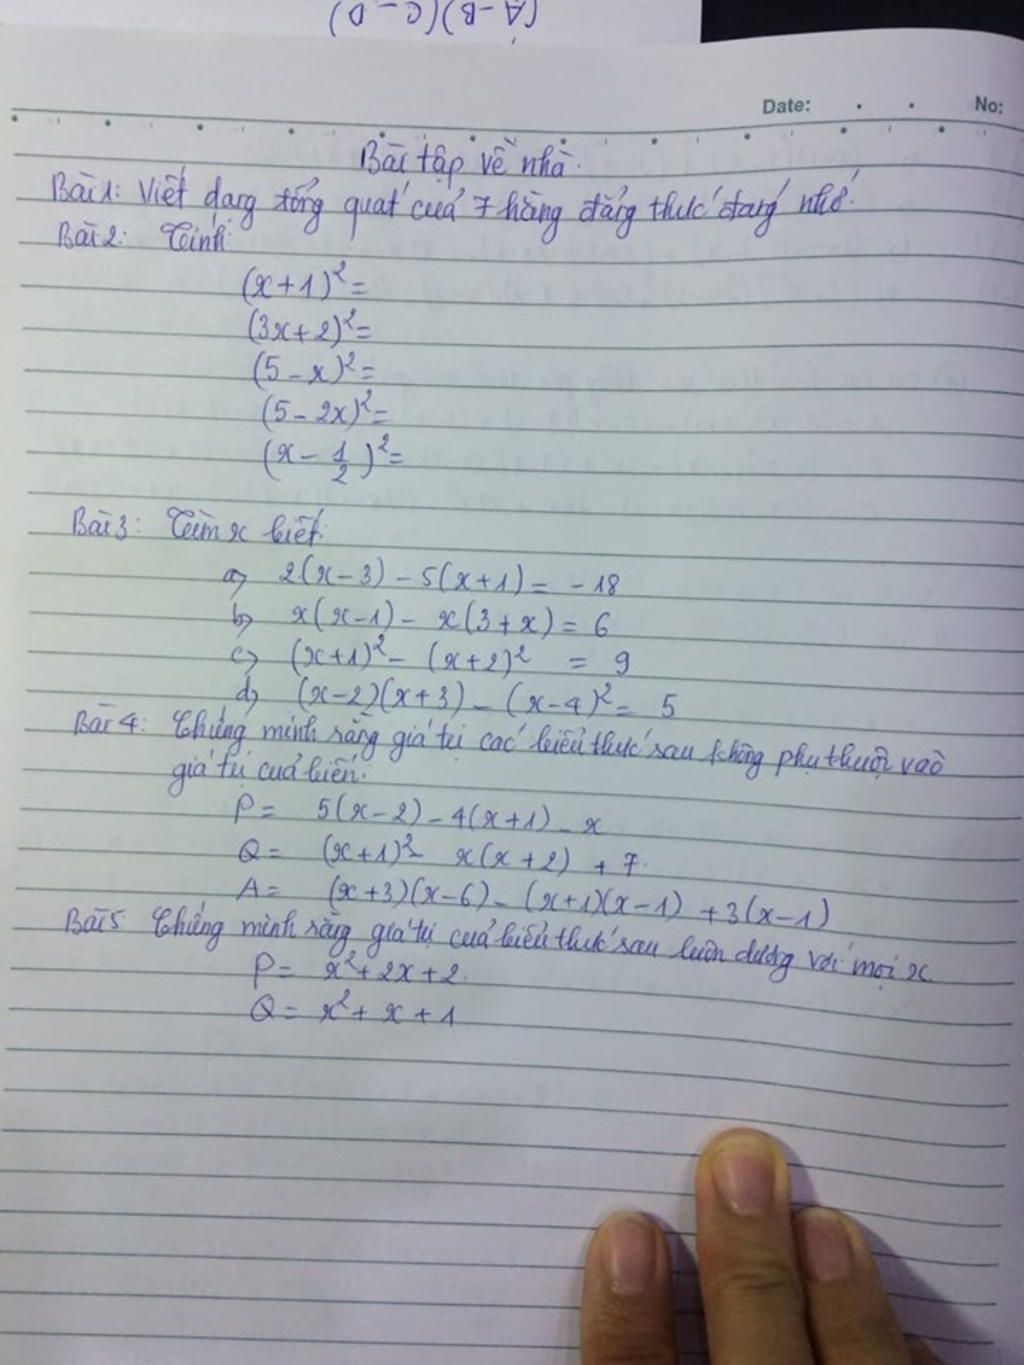 (A-B)(C-D)
Date: No:
Bài tập về nhà.
Bài 1: Viết dạng tổng quát của 7 hằng đẳng thức đáng nhớ.
Bài 2: Tính:
(x+1)²=
(3x+2)²=
(5-x)²=
(5-2x)²=
(x-1/2)²=
Bài 3: Tìm x biết:
a) 2(x-3) - 5(x+1) = -18
b) x(x-1) - x(3+x) = 6
c) (x+1)² - (x+2)² = 9
d) (x-2)(x+3) - (x-4)² = 5
Bài 4: Chứng minh rằng giá trị các biểu thức sau không phụ thuộc vào
giá trị của biến.
P = 5(x-2) - 4(x+1) - x
Q = (x+1)² - x(x+2) + 7.
A = (x+3)(x-6) - (x+1)(x-1) + 3(x-1)
Bài 5 Chứng minh rằng giá trị của biểu thức sau luôn dương với mọi x.
P = x²+2x+2.
Q = x²+x+1